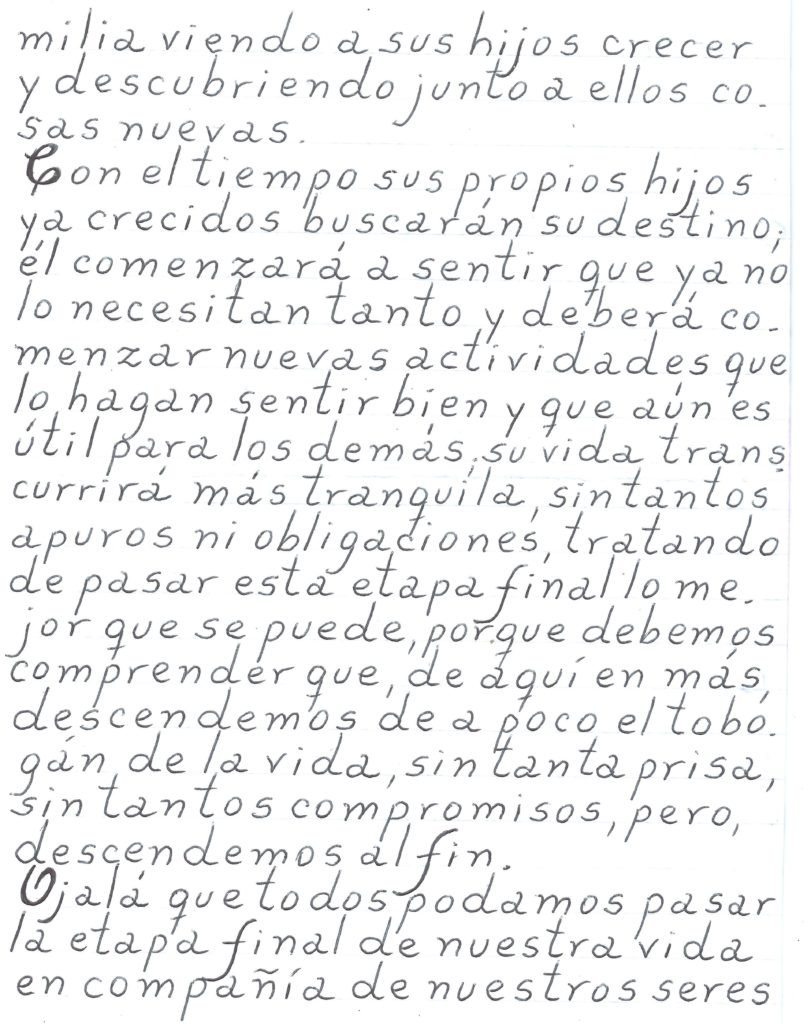 milia viendo a sus hijos crecer
y descubriendo junto a ellos co-
sas nuevas.
Con el tiempo sus propios hijos
ya crecidos buscarán su destino;
él comenzará a sentir que ya no
lo necesitan tanto y deberá co-
menzar nuevas actividades que
lo hagan sentir bien y que aún es
útil para los demás; su vida trans
currirá más tranquila, sin tantos
apuros ni obligaciones, tratando
de pasar esta etapa final lo me-
jor que se puede, porque debemos
comprender que, de aquí en más,
descendemos de a poco el tobo-
gán de la vida, sin tanta prisa,
sin tantos compromisos, pero,
descendemos al fin.
Ojalá que todos podamos pasar
la etapa final de nuestra vida
en compañía de nuestros seres